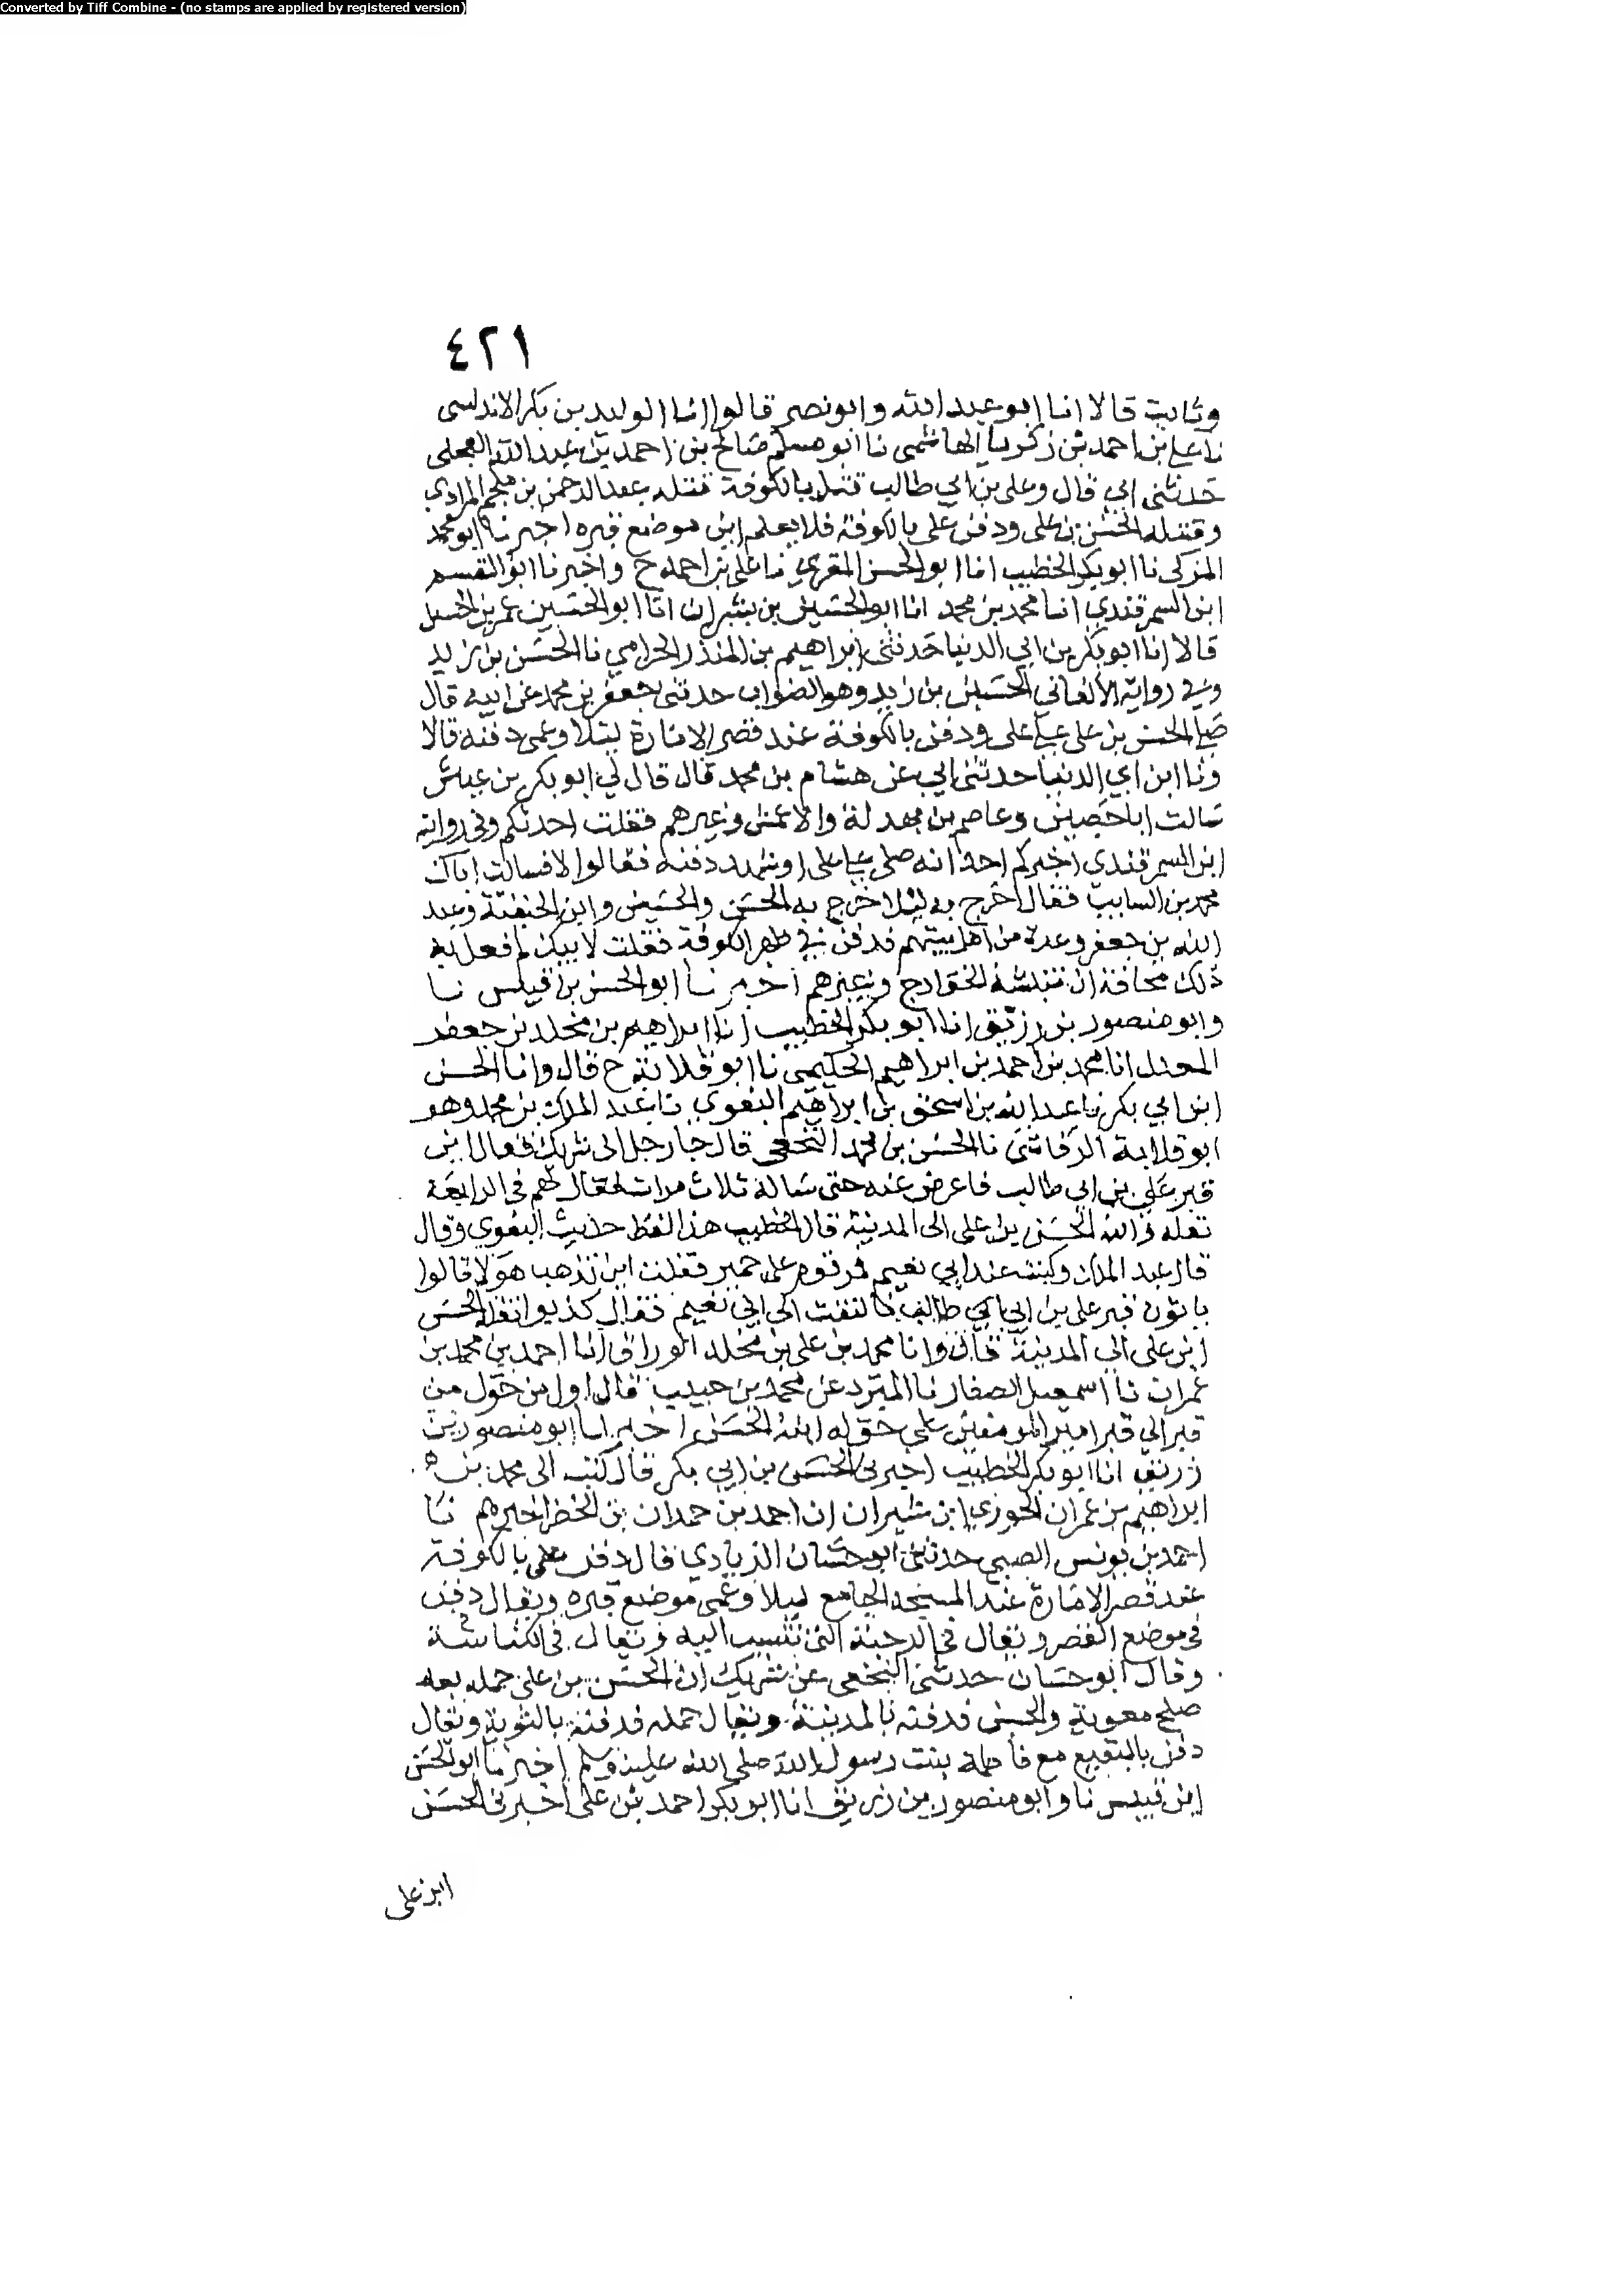 Converted by Tiff Combine - (no stamps are applied by registered version)
٤٢١
وثابت قالا انا ابو عبد الله وابو نصر قالوا انا الوليد بن بكر الاندلسى
نا على بن احمد بن زكريا الهاشمى نا ابو مسلم صالح بن احمد بن عبد الله العجلى
حدثنى ابي قال وعلى بن ابي طالب قتل بالكوفة قتله عبد الرحمن بن ملجم المرادي
وقتله الحسن بن على ودفن على بالكوفة فلا يعلم اين موضع قبره اخبرنا ابو محمد
المزكى نا ابو بكر الخطيب انا ابو الحسن المقري نا على بن احمد ح واخبرنا ابو القسم
ابن السمرقندي انا محمد بن محمد انا ابو الحسين بن بشران انا ابو الحسين عمر بن الحسن
قالا انا ابو بكر بن ابي الدنيا حدثنى ابراهيم بن المنذر الحزامي نا الحسن بن زيد
وفي رواية الحسين بن زيد وهو الصواب حدثنى جعفر بن محمد عن ابيه قال
صلى الحسن بن على على على ودفن بالكوفة عند قصر الامارة ليلا وعمى دفنه قالا
ونا ابن ابي الدنيا حدثنى ابي عن هشام بن محمد قال قال لي ابو بكر بن عياش
سالت ابا حصين وعاصم بن بهدلة والاعمش وغيرهم فقلت احدثكم وفى رواية
ابن السمرقندي اخبركم احد انه صلى على على او شهد دفنه فقالوا لا فسالت اباك
محمد بن السايب فقال اخرج به ليلا خرج به الحسن والحسين وابن الحنفية وعبد
الله بن جعفر وعدة من اهل بيتهم فدفن في ظهر الكوفة فقلت لابيك لم فعل به
ذلك مخافة ان تنبشه الخوارج وغيرهم اخبرنا ابو الحسن بن قبيس نا
وابو منصور بن زريق انا ابو بكر الخطيب انا ابراهيم بن مخلد بن جعفر
المعدل انا محمد بن احمد بن ابراهيم الحكيمى نا ابو قلابة ح قال وانا الحسن
ابن ابي بكر نا عبد الله بن اسحق بن ابراهيم البغوي نا عبد الملك بن محمد وهو
ابو قلابة الرقاشى نا الحسن بن محمد النخعى قال جا رجل الى شريك فقال اين
قبر على بن ابي طالب فاعرض عنه حتى ساله ثلاث مرات فقال لهم فى الرابعة
نقله والله الحسن بن على الى المدينة قال الخطيب هذا لفظ حديث البغوي وقال
قال عبد الملك وكنت عند ابي نعيم فمر قوم على حمير فقلت اين تذهب هولا قالوا
ياتون قبر على بن ابي ابي طالب فالتفت الى ابي نعيم فقال كذبوا نقله الحسن
ابن على الى المدينة قال وانا محمد بن على بن مخلد الوراق انا احمد بن محمد بن
عمران نا اسمعيل الصفار نا المبرد عن محمد بن حبيب قال اول من حول من
قبر الي قبر امير المومنين على حوله ابنه الحسن اخبرنا ابو منصور بن
زريق انا ابو بكر الخطيب اخبرنى الحسن بن ابي بكر قال كتب الى محمد بن
ابراهيم بن عمران الجوزي ان احمد بن حمدان بن الخضر اخبرهم نا
احمد بن يونس الضبى حدثنى ابو حسان الزيادي قال دفن على بالكوفة
عند قصر الامارة عند المسجد الجامع ليلا وعمى موضع قبره ويقال دفن
فى موضع القصر ويقال فى الرحبة التى تنسب اليه ويقال فى الكناسة
وقال ابو حسان حدثنى النخعى عن شريك ان الحسن بن على حمله بعد
صلح معوية والحسن فدفنه بالمدينة ويقال حمله فدفنه بالثوية ويقال
دفن بالبقيع مع فاطمة بنت رسول الله صلى الله عليه وسلم اخبرنا ابو الحسن
ابن قبيس نا وابو منصور بن زريق انا ابو بكر احمد بن على اخبرنى الحسن
ابن على